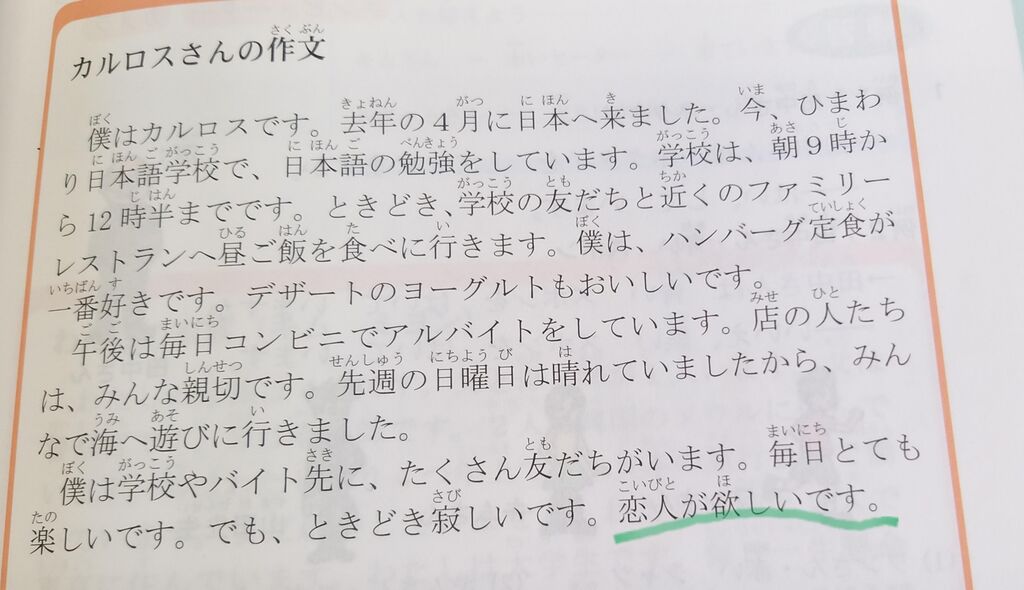 カルロスさんの作文
僕はカルロスです。去年の4月に日本へ来ました。今、ひまわ
り日本語学校で、日本語の勉強をしています。学校は、朝9時か
ら12時半までです。ときどき、学校の友だちと近くのファミリー
レストランへ昼ご飯を食べに行きます。僕は、ハンバーグ定食が
一番好きです。デザートのヨーグルトもおいしいです。
午後は毎日コンビニでアルバイトをしています。店の人たち
は、みんな親切です。先週の日曜日は晴れていましたから、みん
なで海へ遊びに行きました。
僕は学校やバイト先に、たくさん友だちがいます。毎日とても
楽しいです。でも、ときどき寂しいです。恋人が欲しいです。